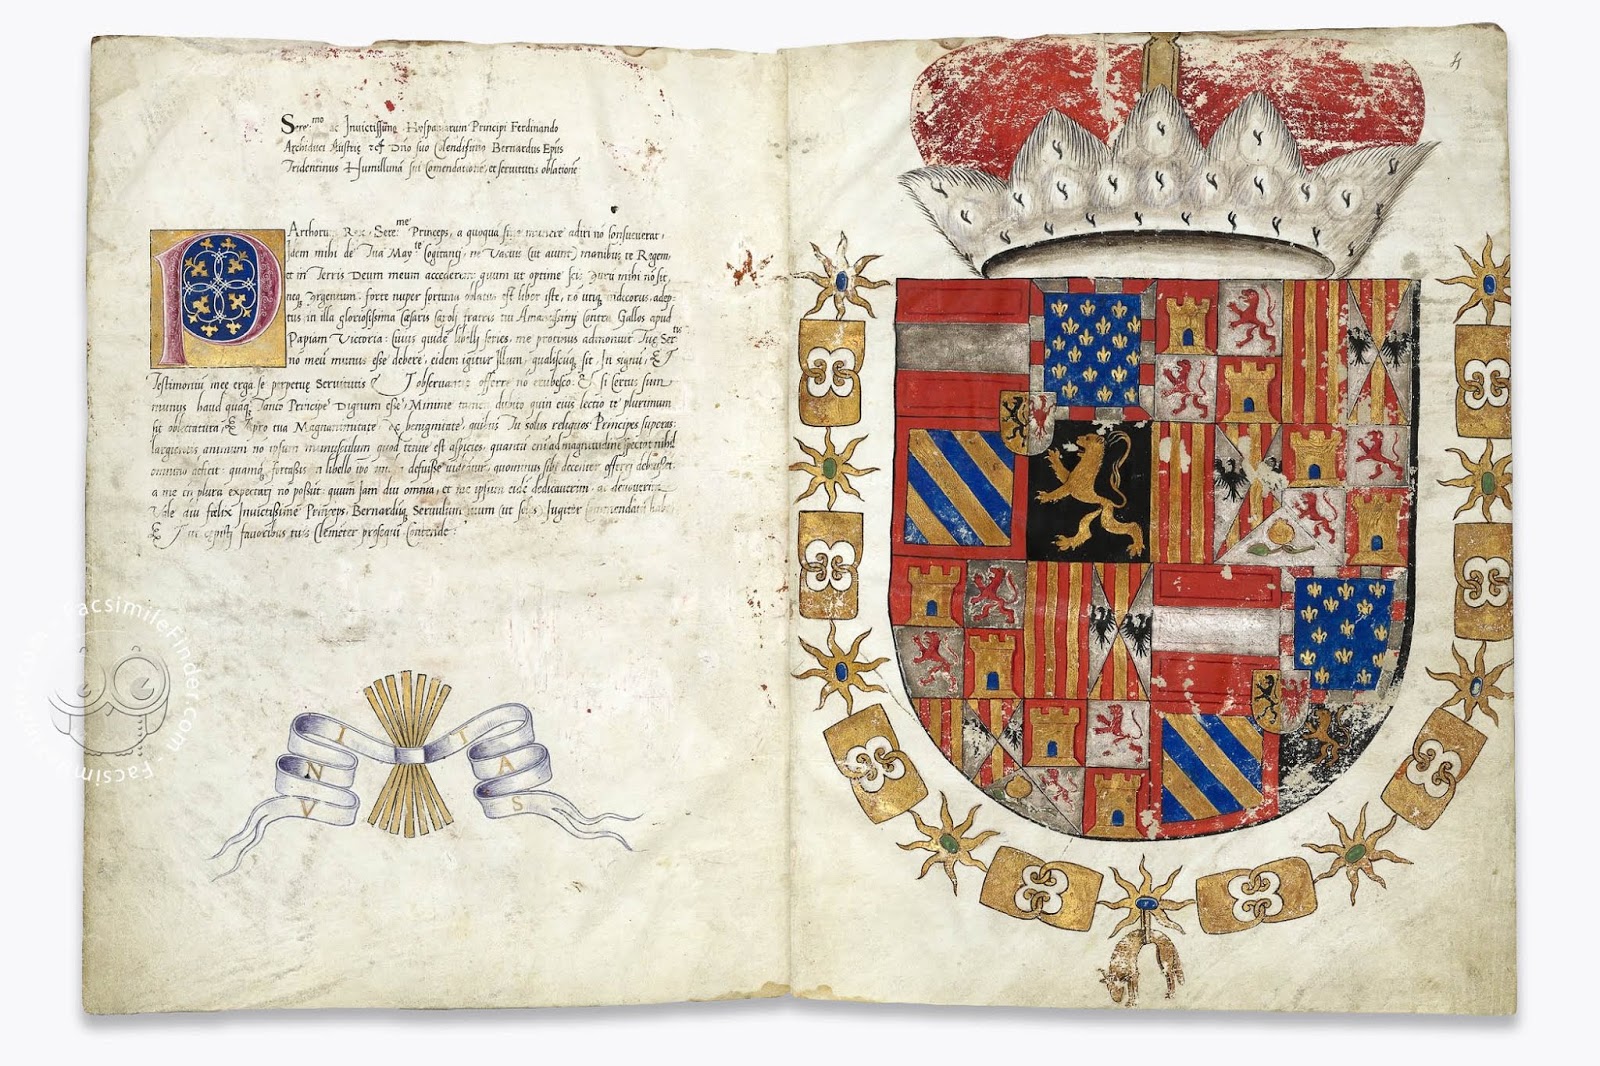 Sere.mo ac Invictissimo Hyspaniarum Principi Ferdinando
Archiduci Austrię Dño suo Colendissimo Bernardus Epus
Tridentinus Humillimã Comendationẽ, et servitutis oblationẽ
PArthorum Rex, Sere.me Princeps, a quoquã sine munere adiri nõ consueverat,
Idem mihi de Tua May.te Cogitanti, ne Vacuis (ut aiunt) manibus te Regem
et in Terris Deum meum accederem quum ut optime scis Aurũ mihi nõ sit,
neq3 Argentum. forte nuper fortuna oblatus est liber iste, nõ utiq3 indecorus, adep-
tus in illa gloriosissima Cæsaris Caroli fratris tui Amantissimi Contra Gallos apud
Papiam Victoria: Cuius quidẽ libelli series, me protinus admonuit Tuę Ser.tis
nõ meũ munus esse debere, eidem igitur Illum, qualiscũq3 sit, In signũ, &
Testimoniũ meę erga se perpetuę Servitutis & observantię offerre nõ erubesco. & si Certus sium
munus haud quaq3 Tanto Principe Dignum esse, Minime tamen dubito quin eius lectio te plurimum
sit oblectatura, & pro tua Magnanimitate ac benignitate, quibus Tu solus reliquos Principes superas:
largientis animum nõ ipsum munusculum quod tenue est aspicies, quanti eni ad magnitudinẽ spectat nihil
omnino deficit: quamq3 fortassis libello defuisse videatur, quominus sibi decenter offerri debuisset,
a me in plura expectari nõ possũt. quum Iam diu omnia, et me ipsum eidẽ dedicaverim, ac devoverim.
Vale diu fœlix Invictissime Princeps, Bernardũq3 Servulum tuum (ut soles) Iugiter Commendatũ habe,
& favoribus tuis Clementer prosequi Contende:
VNITAS
FacsimileFinder.com